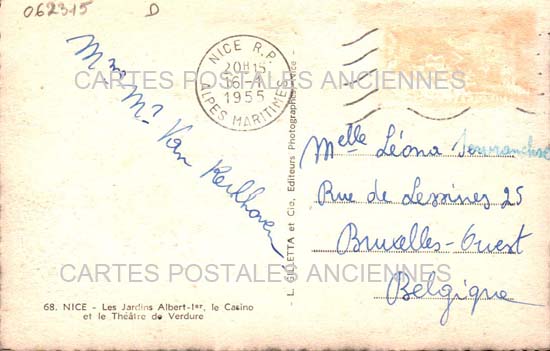 062315 D
NICE R.P.
20H15
16-1
1955
ALPES MARITIMES
CARTES POSTALES ANCIENNES
Mme Mr Van Kerkhoven
Melle Léona
Rue de Lessines 25
Bruxelles-Ouest
Belgique
L. GILLETTA et Cie, Editeurs Photographes, Nice -
CARTES POSTALES ANCIENNES
68. NICE - Les Jardins Albert-Ier, le Casino
et le Théâtre de Verdure